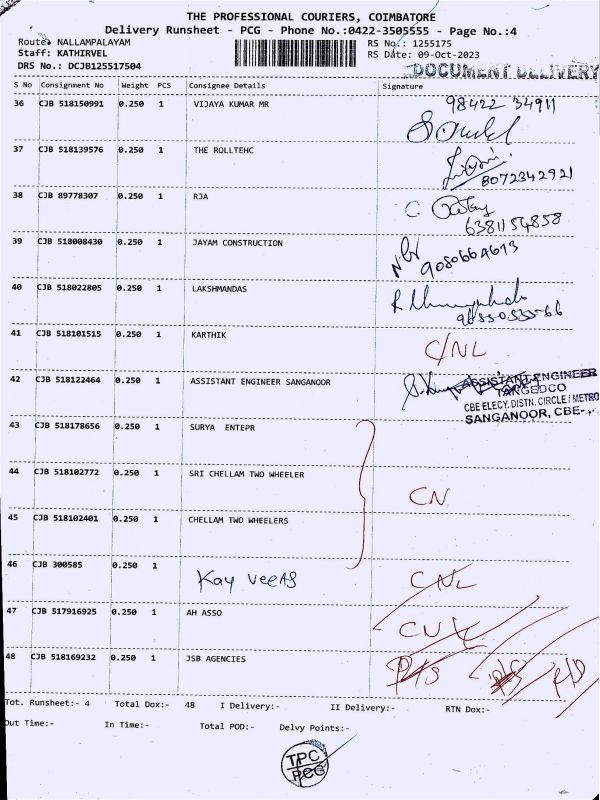 THE PROFESSIONAL COURIERS, COIMBATORE
Delivery Runsheet - PCG - Phone No.:0422-3505555 - Page No.:4
Route: NALLAMPALAYAM RS No.: 1255175
Staff: KATHIRVEL RS Date: 09-Oct-2023
DRS No.: DCJB125517504 DOCUMENT DELIVERY
S No Consignment No Weight PCS Consignee Details Signature
36 CJB 518150991 0.250 1 VIJAYA KUMAR MR 98422 34911
37 CJB 518139576 0.250 1 THE ROLLTEHC
8072342921
38 CJB 89778307 0.250 1 RJA
6381154858
39 CJB 518008430 0.250 1 JAYAM CONSTRUCTION
9080664613
40 CJB 518022805 0.250 1 LAKSHMANDAS
41 CJB 518101515 0.250 1 KARTHIK C/NL
42 CJB 518122464 0.250 1 ASSISTANT ENGINEER SANGANOOR ASSISTANT ENGINEER
TANGEDCO
CBE ELECY. DISTN. CIRCLE / METRO
SANGANOOR, CBE-
43 CJB 518178656 0.250 1 SURYA ENTEPR
44 CJB 518102772 0.250 1 SRI CHELLAM TWO WHEELER
CN
45 CJB 518102401 0.250 1 CHELLAM TWO WHEELERS
46 CJB 300585 0.250 1 Kay Veeas CNL
47 CJB 517916925 0.250 1 AH ASSO
48 CJB 518169232 0.250 1 JSB AGENCIES
Tot. Runsheet:- 4 Total Dox:- 48 I Delivery:- II Delivery:- RTN Dox:-
Out Time:- In Time:- Total POD:- Delvy Points:-
TPC
PCG